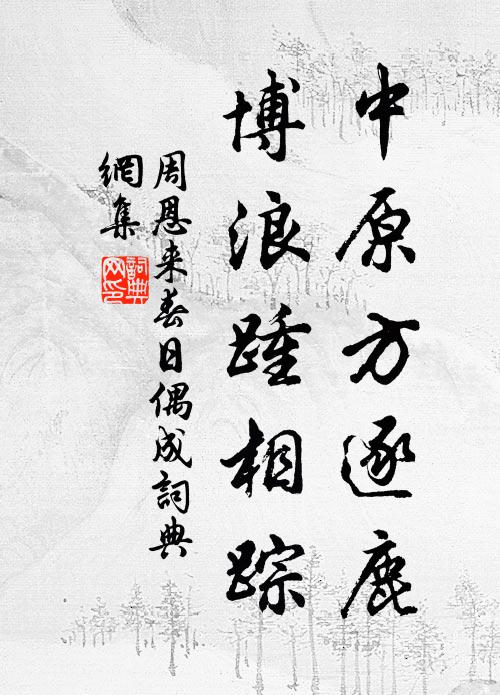 中原方逐鹿
博浪踵相踪
周恩来春日偶成詞典
網集
詞典
网印